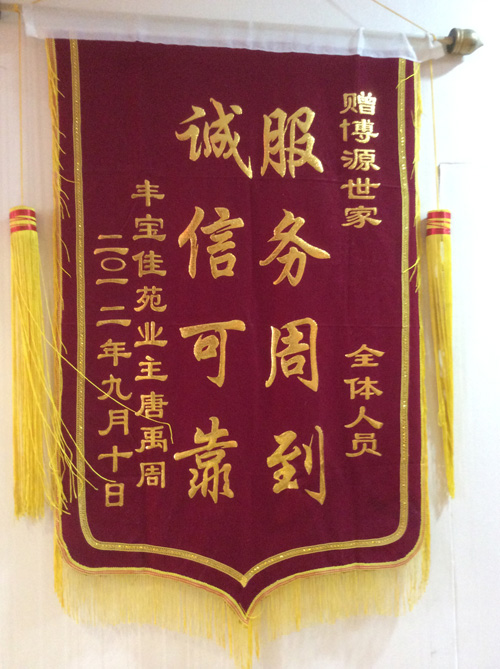 赠博源世家 全体人员
服务周到
诚信可靠
丰宝佳苑业主唐禹周
二〇一二年九月十日